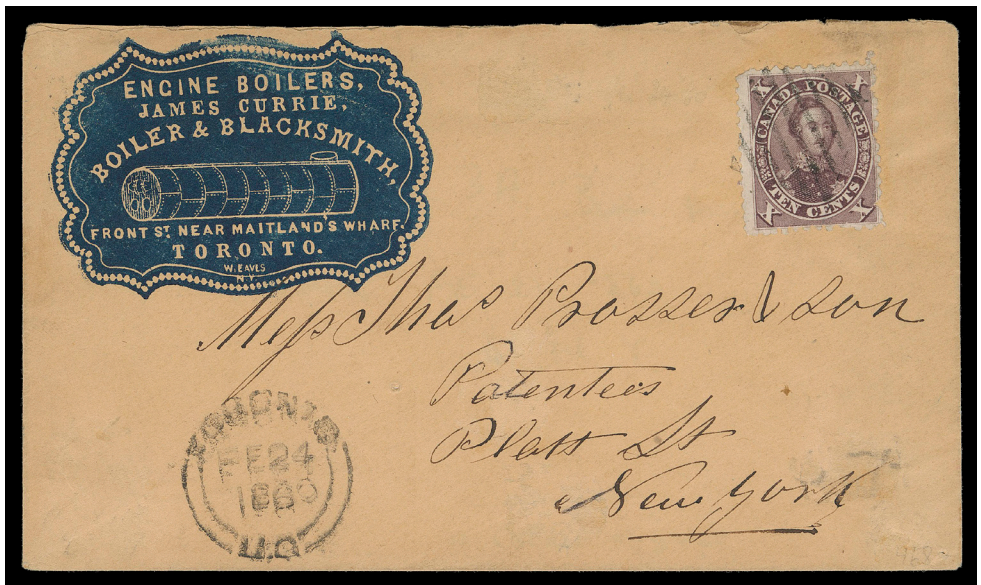 ENGINE BOILERS,
JAMES CURRIE,
BOILER & BLACKSMITH,
FRONT ST. NEAR MAITLAND'S WHARF.
TORONTO.
W. EAVES
N.Y.
X X
CANADA POSTAGE
TEN CENTS
X X
Mess Thos Prosser & Son
Patentees
Platt St
New York
TORONTO
FE 24
1860
U.C